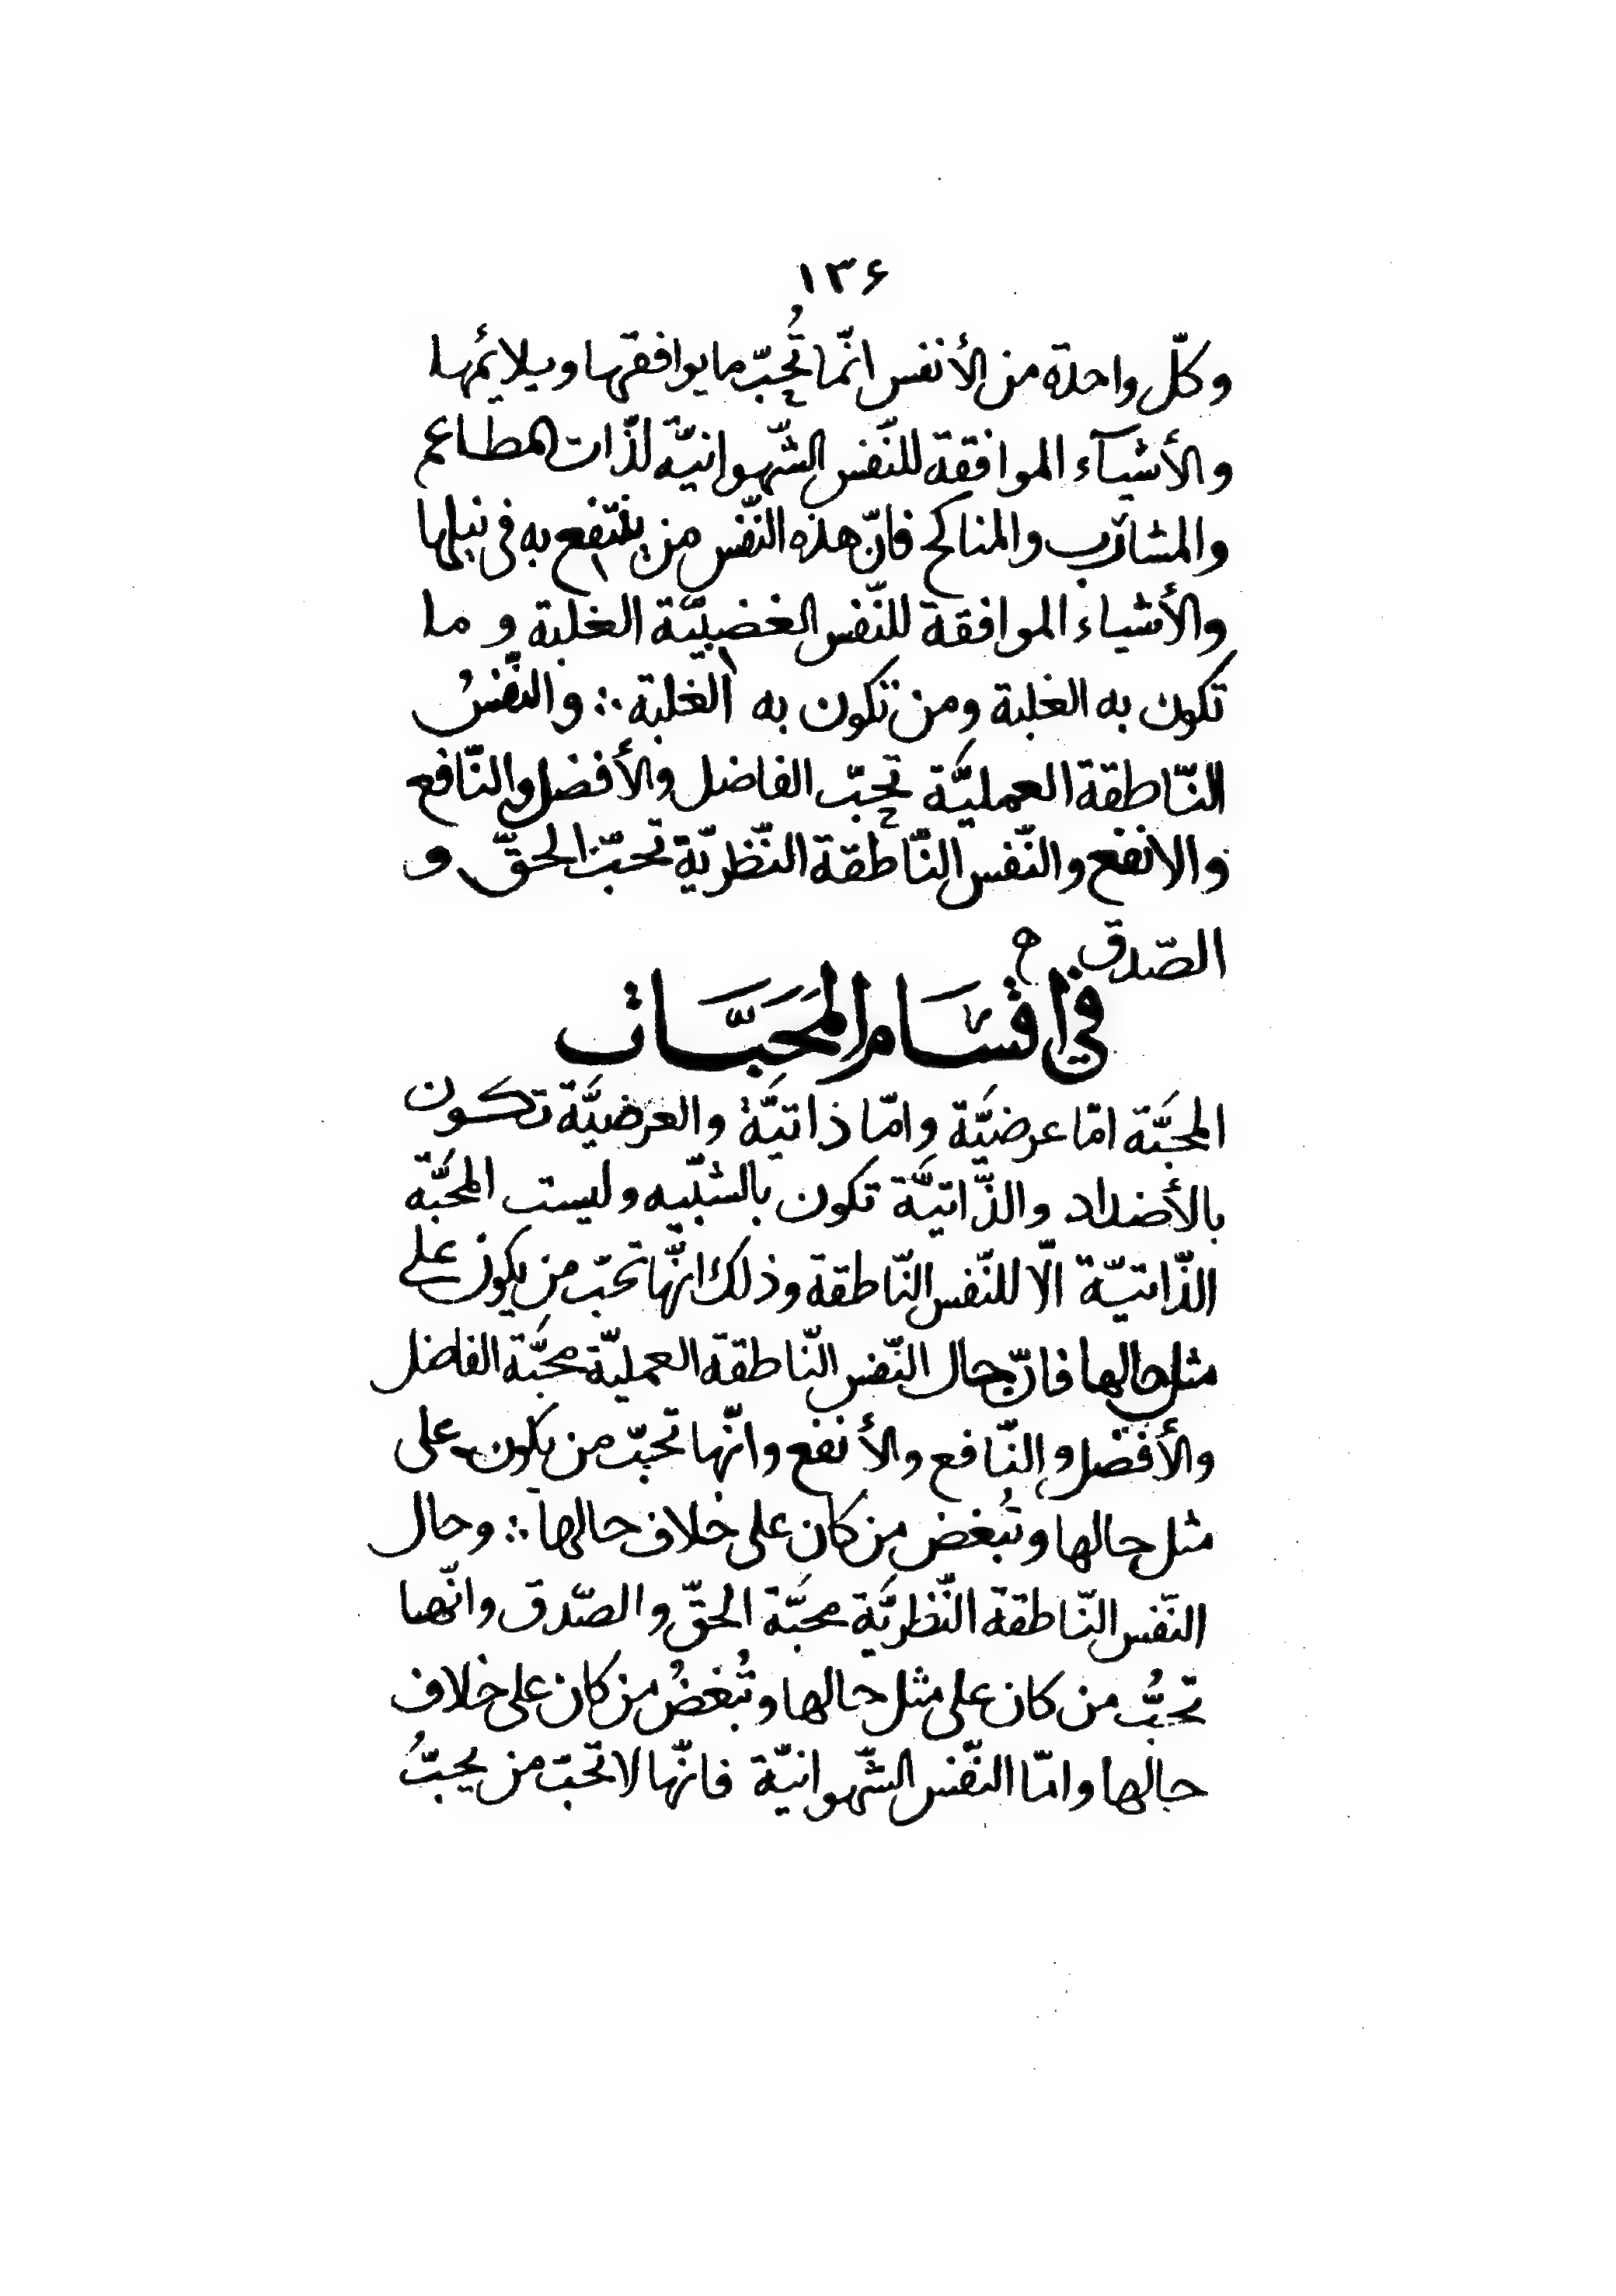 ۱۳۶
وكلّ واحدة من الأنفس انّما تُحبّ ما يوافقها ويلائمها
والأشيآء الموافقة للنّفس الشّهوانيّة لذّات المطاعم
والمشارب والمناكح فانّ هذه النّفس من ينتفع به فى نيلها
والأشياء الموافقة للنّفس الغضبيّة الغلبة و ما
تكون به الغلبة ومن تكون به الغلبة ∴ والنّفسُ
النّاطقة العمليّة تحبّ الفاضل والأفضل والنّافع
والانفع والنّفس النّاطقة النّظريّة تحبّ الحقّ و
الصّدق ه
في اقسام المَحَبَّات
المحبَّة امّا عرضيَّة وامّا ذاتيَّة والعرضيَّة تكون
بالأضداد والذّاتيَّة تكون بالشّبيه وليست المحَبَّة
الذّاتيّة الّا للنّفس النّاطقة وذلك انّها تحبّ من يكون على
مثل حالها فانّ حال النّفس النّاطقة العمليّة محبَّة الفاضل
والأفضل والنّافع والأنفع وانّها تحبّ من يكون على
مثل حالها وتُبغض من كان على خلاف حالها ∴ وحال
النّفس النّاطقة النّظريَّة محبَّة الحقّ والصّدق وانّها
تحبُّ من كان على مثل حالها وتُبغضُ من كان على خلاف
حالها وامّا النّفس الشّهوانيّة فانّها لا تحبّ من يحبُّ